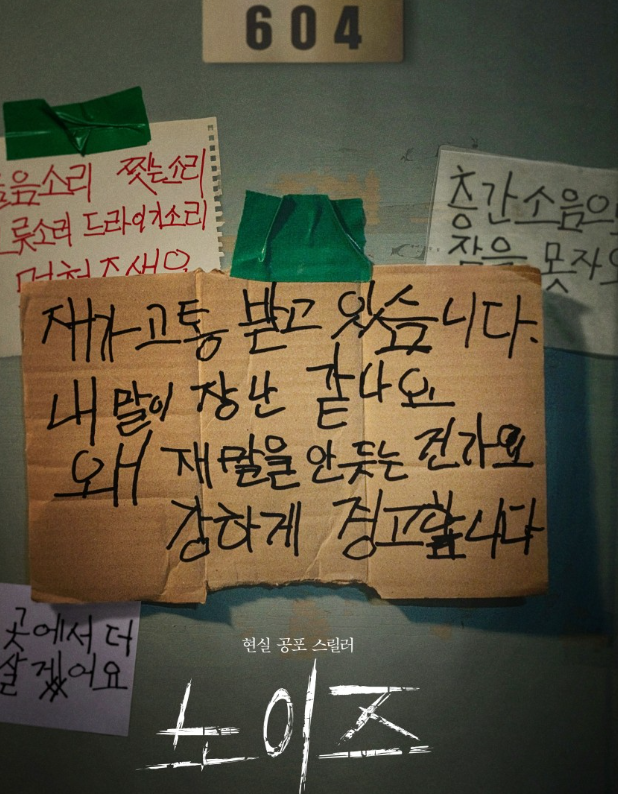 604
찢는소리
드라이기소리
층간소음으
잠을 못자
재가 고통 받고 있습니다.
내 말이 장난 같나요
왜 재 말을 안 듯는 건가요
강하게 경고합니다
곳에서 더
살 겠어요
현실 공포 스릴러
노이즈